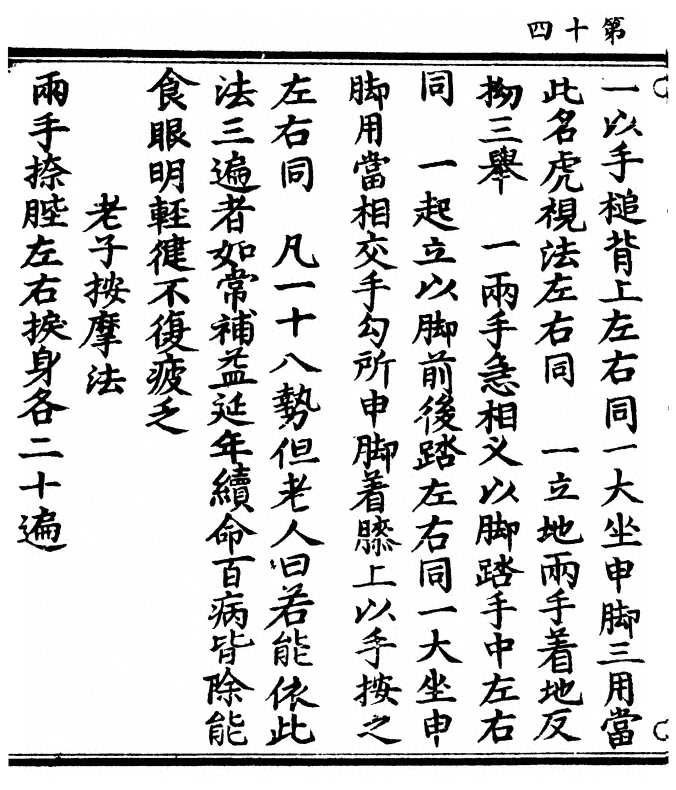 第十四
一以手槌背上左右同一大坐申脚三用當
此名虎視法左右同　一立地兩手着地反
拗三舉　一兩手急相叉以脚踏手中左右
同　一起立以脚前後踏左右同一大坐申
脚用當相交手勾所申脚着膝上以手按之
左右同　凡一十八勢但老人日若能依此
法三遍者如常補益延年續命百病皆除能
食眼明輕徤不復疲乏
老子按摩法
兩手捺䏶左右捩身各二十遍